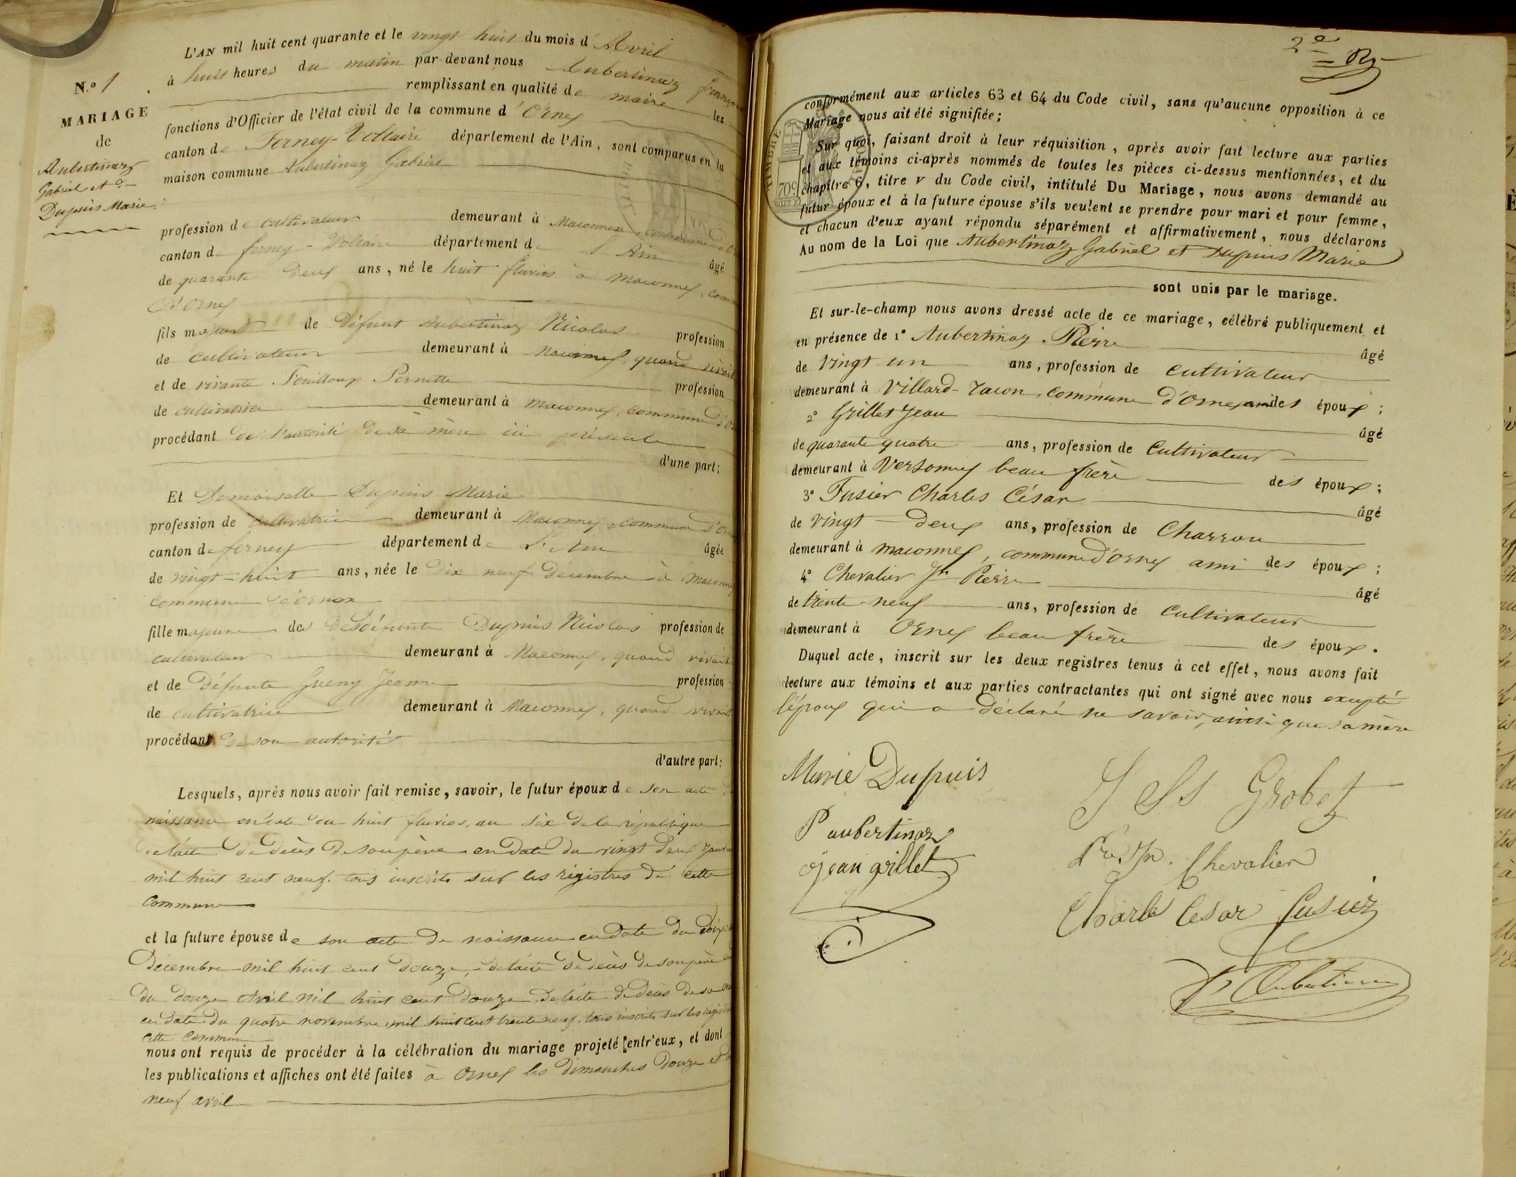 N.o 1
MARIAGE
de
Aubertinaz
Gabriel et de
Dupuis Marie
L'AN mil huit cent quarante et le vingt huit du mois d'Avril
à huit heures du matin par-devant nous Aubertinaz
remplissant en qualité de maire les
fonctions d'Officier de l'état civil de la commune d'Ornex
canton de Ferney-Voltaire département de l'Ain, sont comparus en la
maison commune Aubertinaz Gabriel
profession de cultivateur demeurant à Maconnex, commune d'
canton de ferney-Voltaire département de l'Ain âgé
de quarante deux ans, né le huit fluvios à Maconnex, com
d'Ornex
fils majeur de défunt Aubertinaz Nicolas profession
de cultivateur demeurant à Maconnex, quand vivait
et de vivante Fouilloux Pernette profession
de cultivatrice demeurant à Maconnex, commune d'
procédant de l'autorité de sa mère ici présente
d'une part;
Et Demoiselle Dupuis Marie
profession de cultivatrice demeurant à Maconnex, commune d'Or
canton de ferney département de L'Ain âgée
de vingt-huit ans, née le dix neuf Décembre à Maconnex
commune d'ornex
fille majeure de défunt Dupuis Nicolas profession de
cultivateur demeurant à Maconnex, quand vivait
et de défunte Jeanne profession
de cultivatrice demeurant à Maconnex, quand vivait
procédant de son autorité
d'autre part:
Lesquels, après nous avoir fait remise, savoir, le futur époux de son acte
naissance en date du huit fluvios, an six de la république
de l'acte de décès de son père en date du vingt deux
mil huit cent neuf. tous inscrits sur les régistres de cette
commune
et la future épouse de son acte de naissance en date du
Décembre mil huit cent douze, de l'acte de décès de son père
du douze Avril mil huit cent douze de l'acte de décès de sa
en date du quatre novembre mil huit cent trente neuf. tous inscrits sur les
cette commune
nous ont requis de procéder à la célébration du mariage projeté entr'eux, et dont
les publications et affiches ont été faites à Ornex les dimanches douze et
neuf avril
2e
conformément aux articles 63 et 64 du Code civil, sans qu'aucune opposition à ce
Mariage nous ait été signifiée;
Sur quoi, faisant droit à leur réquisition, après avoir fait lecture aux parties
et aux témoins ci-après nommés de toutes les pièces ci-dessus mentionnées, et du
chapitre 6, titre v du Code civil, intitulé Du Mariage, nous avons demandé au
futur époux et à la future épouse s'ils veulent se prendre pour mari et pour femme,
et chacun d'eux ayant répondu séparément et affirmativement, nous déclarons
Au nom de la Loi que Aubertinaz Gabriel et Dupuis Marie
sont unis par le mariage.
Et sur-le-champ nous avons dressé acte de ce mariage, célébré publiquement et
en présence de 1° Aubertinaz Pierre
âgé
de vingt un ans, profession de cultivateur
demeurant à Villard-Tacon, commune d'Ornex ami des époux;
2° Grillet Jean
âgé
de quarante quatre ans, profession de cultivateur
demeurant à Versonnex beau frère des époux;
3° Fusier Charles César
âgé
de vingt-deux ans, profession de Charron
demeurant à maconnex, commune d'ornex ami des époux;
4° Chevalier Jn Pierre
âgé
de trente-neuf ans, profession de cultivateur
demeurant à Ornex beau frère des époux.
Duquel acte, inscrit sur les deux registres tenus à cet effet, nous avons fait
lecture aux témoins et aux parties contractantes qui ont signé avec nous excepté
l'époux qui a déclaré ne savoir, ainsi que sa mère
Marie Dupuis
P aubertinaz
jean grillet
Grobet
Chevalier
Charle Cesar fusiez
Aubertinaz